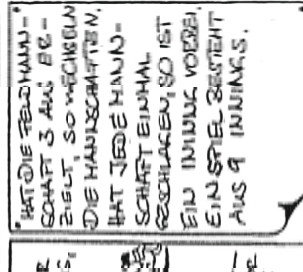 "HAT DIE FELDMANN-
SCHAFT 3 AUS ER-
ZIELT, SO WECHSELN
DIE MANNSCHAFTEN.
HAT JEDE MANN-
SCHAFT EINMAL
GESCHLAGEN, SO IST
EIN INNING VORBEI.
EIN SPIEL BESTEHT
AUS 9 INNINGS.